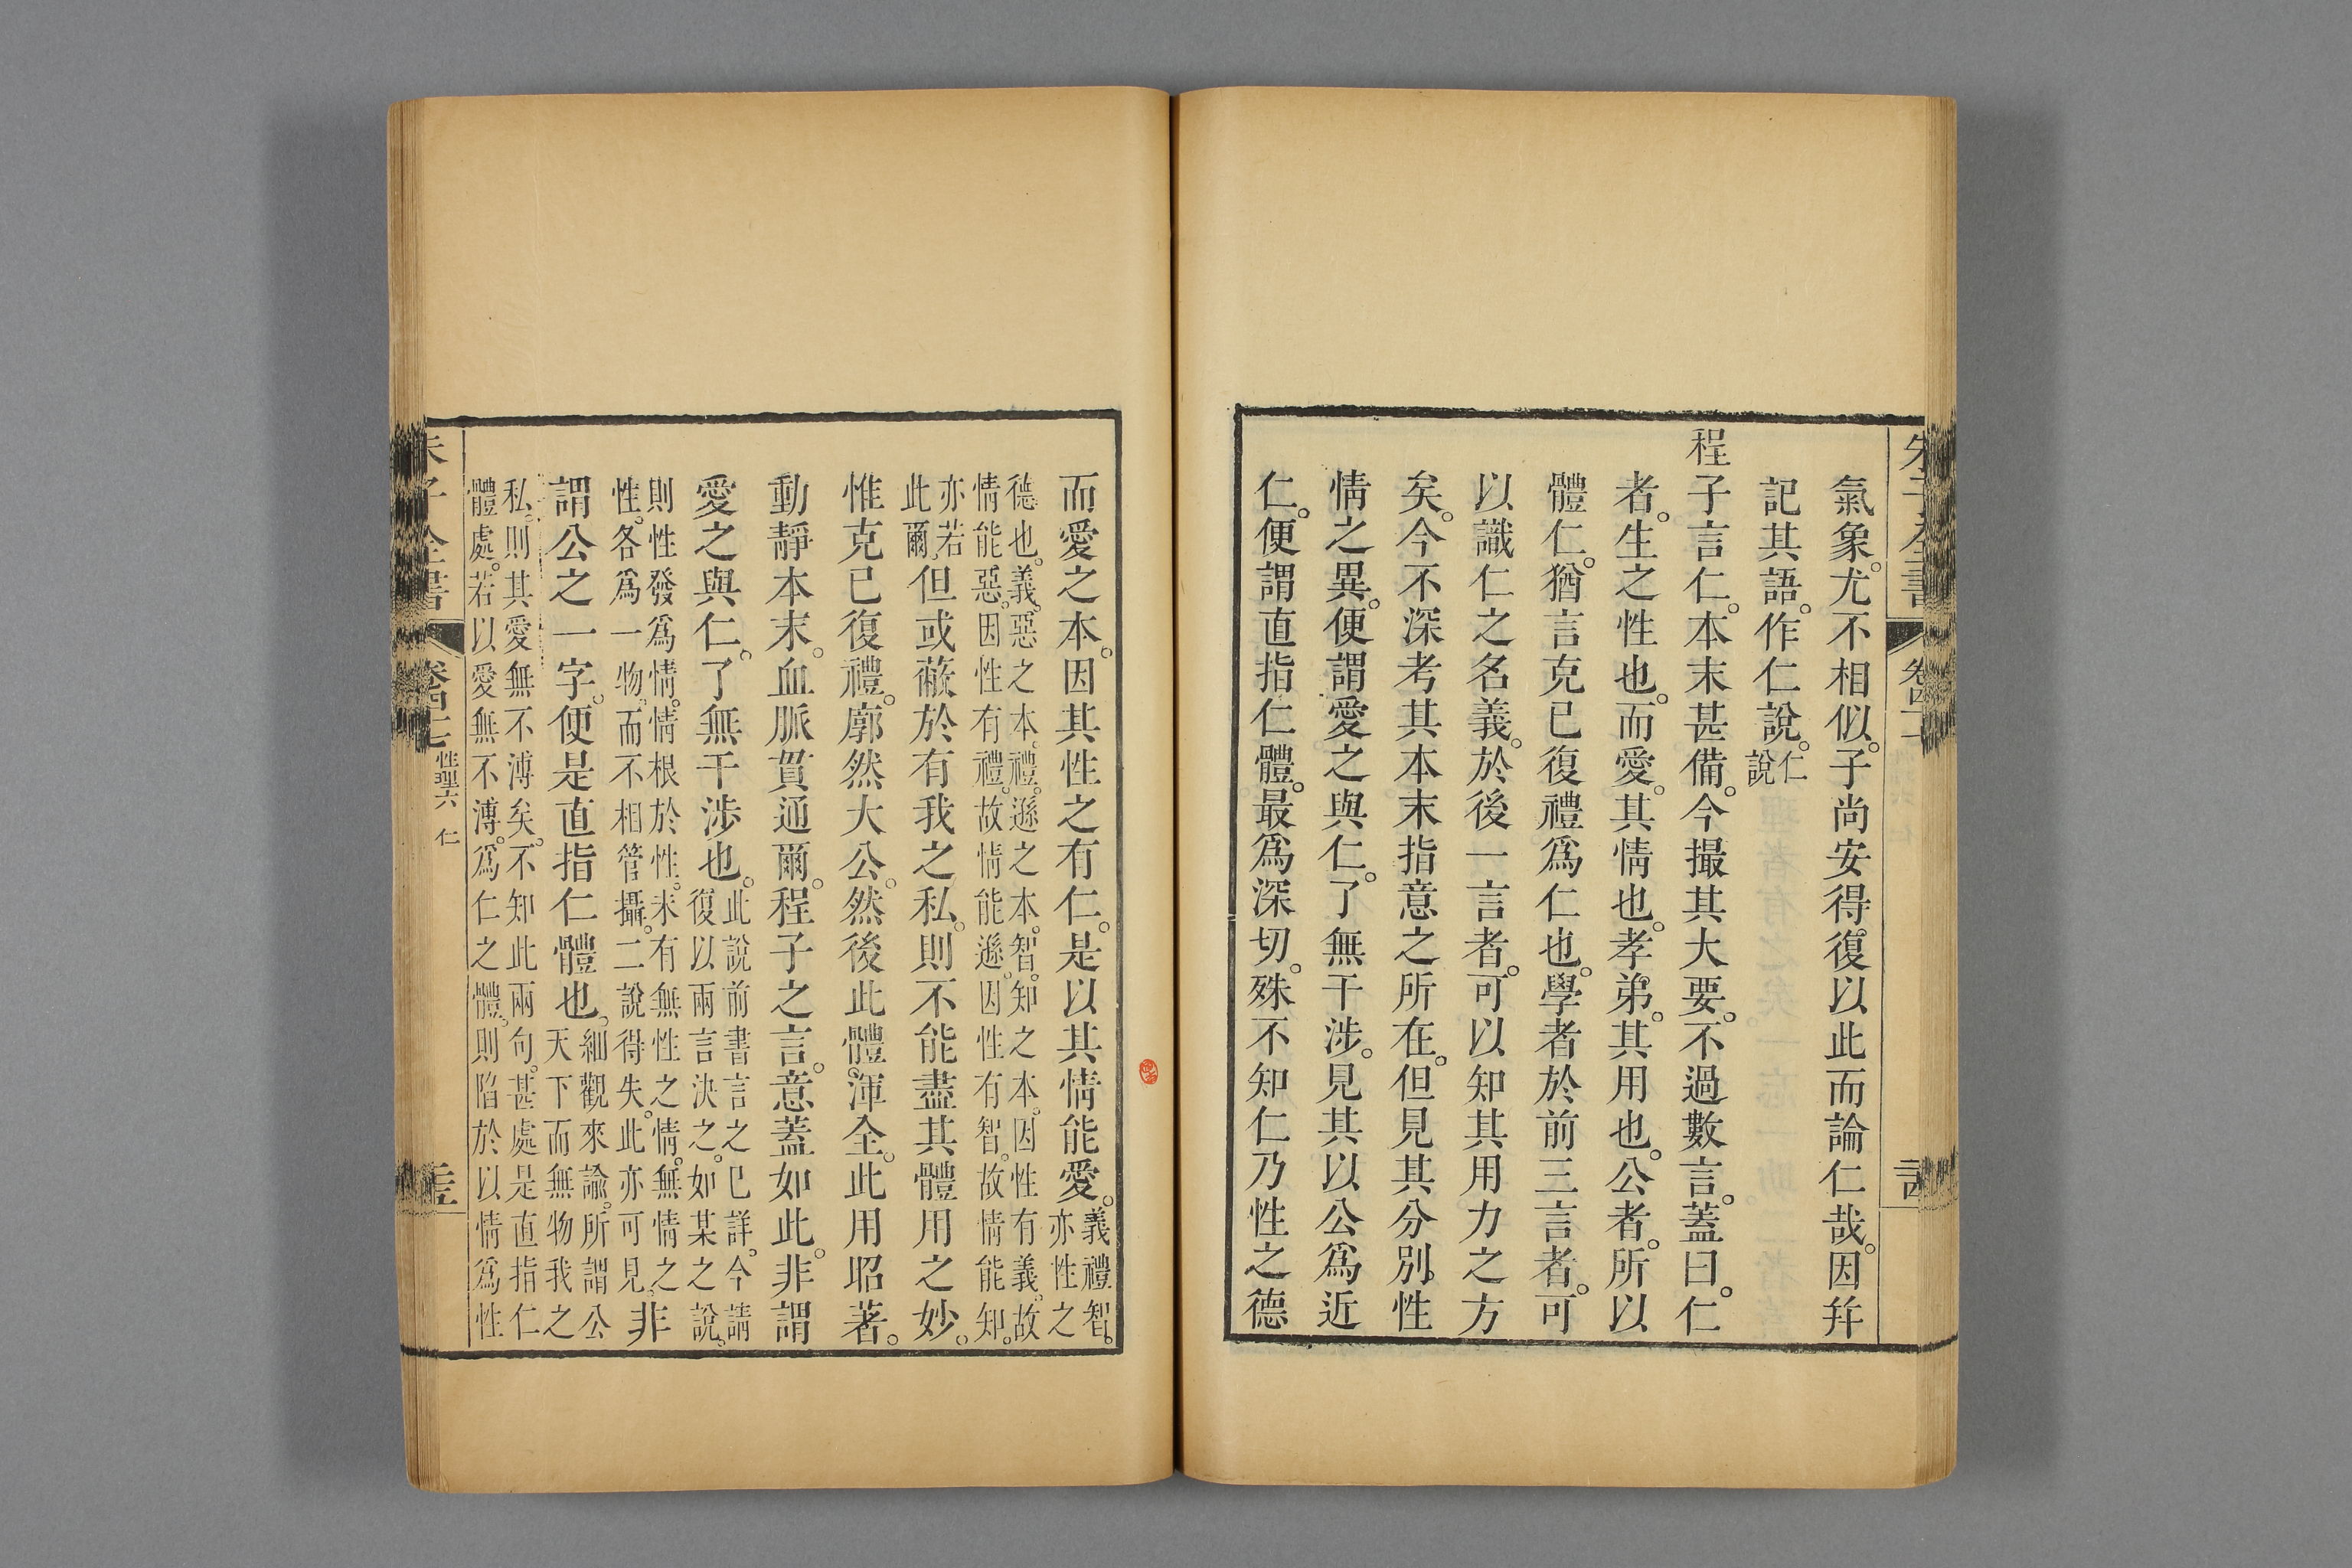 氣象。尤不相似。子尚安得。復以此而論仁哉。因幷
記其語。作仁說。仁
說
程子言仁。本末甚備。今撮其大要。不過數言。蓋曰。仁
者。生之性也。而愛。其情也。孝弟。其用也。公者。所以
體仁。猶言克已復禮爲仁也。學者於前三言者。可
以識仁之名義。於後一言者。可以知其用力之方
矣。今不深考其本末指意之所在。但見其分別性
情之異。便謂愛之與仁。了無干涉。見其以公爲近
仁。便謂直指仁體。最爲深切。殊不知仁乃性之德
而愛之本。因其性之有仁。是以其情能愛。義禮智。
亦性之
德也。義。惡之本。禮。遜之本。智。知之本。因性有義。故
情能惡。因性有禮。故情能遜。因性有智。故情能知。
亦若
此爾。但或蔽於有我之私。則不能盡其體用之妙。
惟克已復禮。廓然大公。然後此體渾全。此用昭著。
動靜本末。血脈貫通爾。程子之言。意蓋如此。非謂
愛之與仁。了無干涉也。此說前書言之已詳。今請
復以兩言決之。如某之說。
則性發爲情。情根於性。未有無性之情。無情之
性。各爲一物。而不相管攝。二說得失。此亦可見。非
謂公之一字。便是直指仁體也。細觀來諭。所謂公
天下而無物我之
私。則其愛無不溥矣。不知此兩句。甚處是直指仁
體處。若以愛無不溥。爲仁之體。則陷於以情爲性
性理六 仁